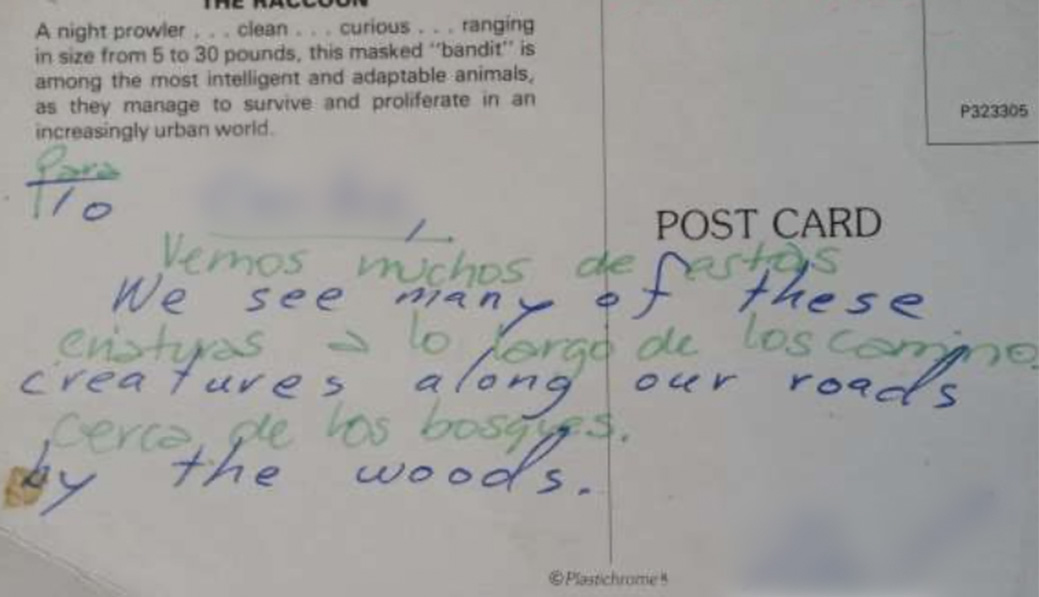 THE RACCOON
A night prowler . . . clean . . . curious . . . ranging
in size from 5 to 30 pounds, this masked "bandit" is
among the most intelligent and adaptable animals,
as they manage to survive and proliferate in an
increasingly urban world.
P323305
Para
To
POST CARD
Vemos muchos de
We see many of these
criaturas a lo largo de los camino
creatures along our roads
cerca de los bosques.
by the woods.
©Plastichrome®